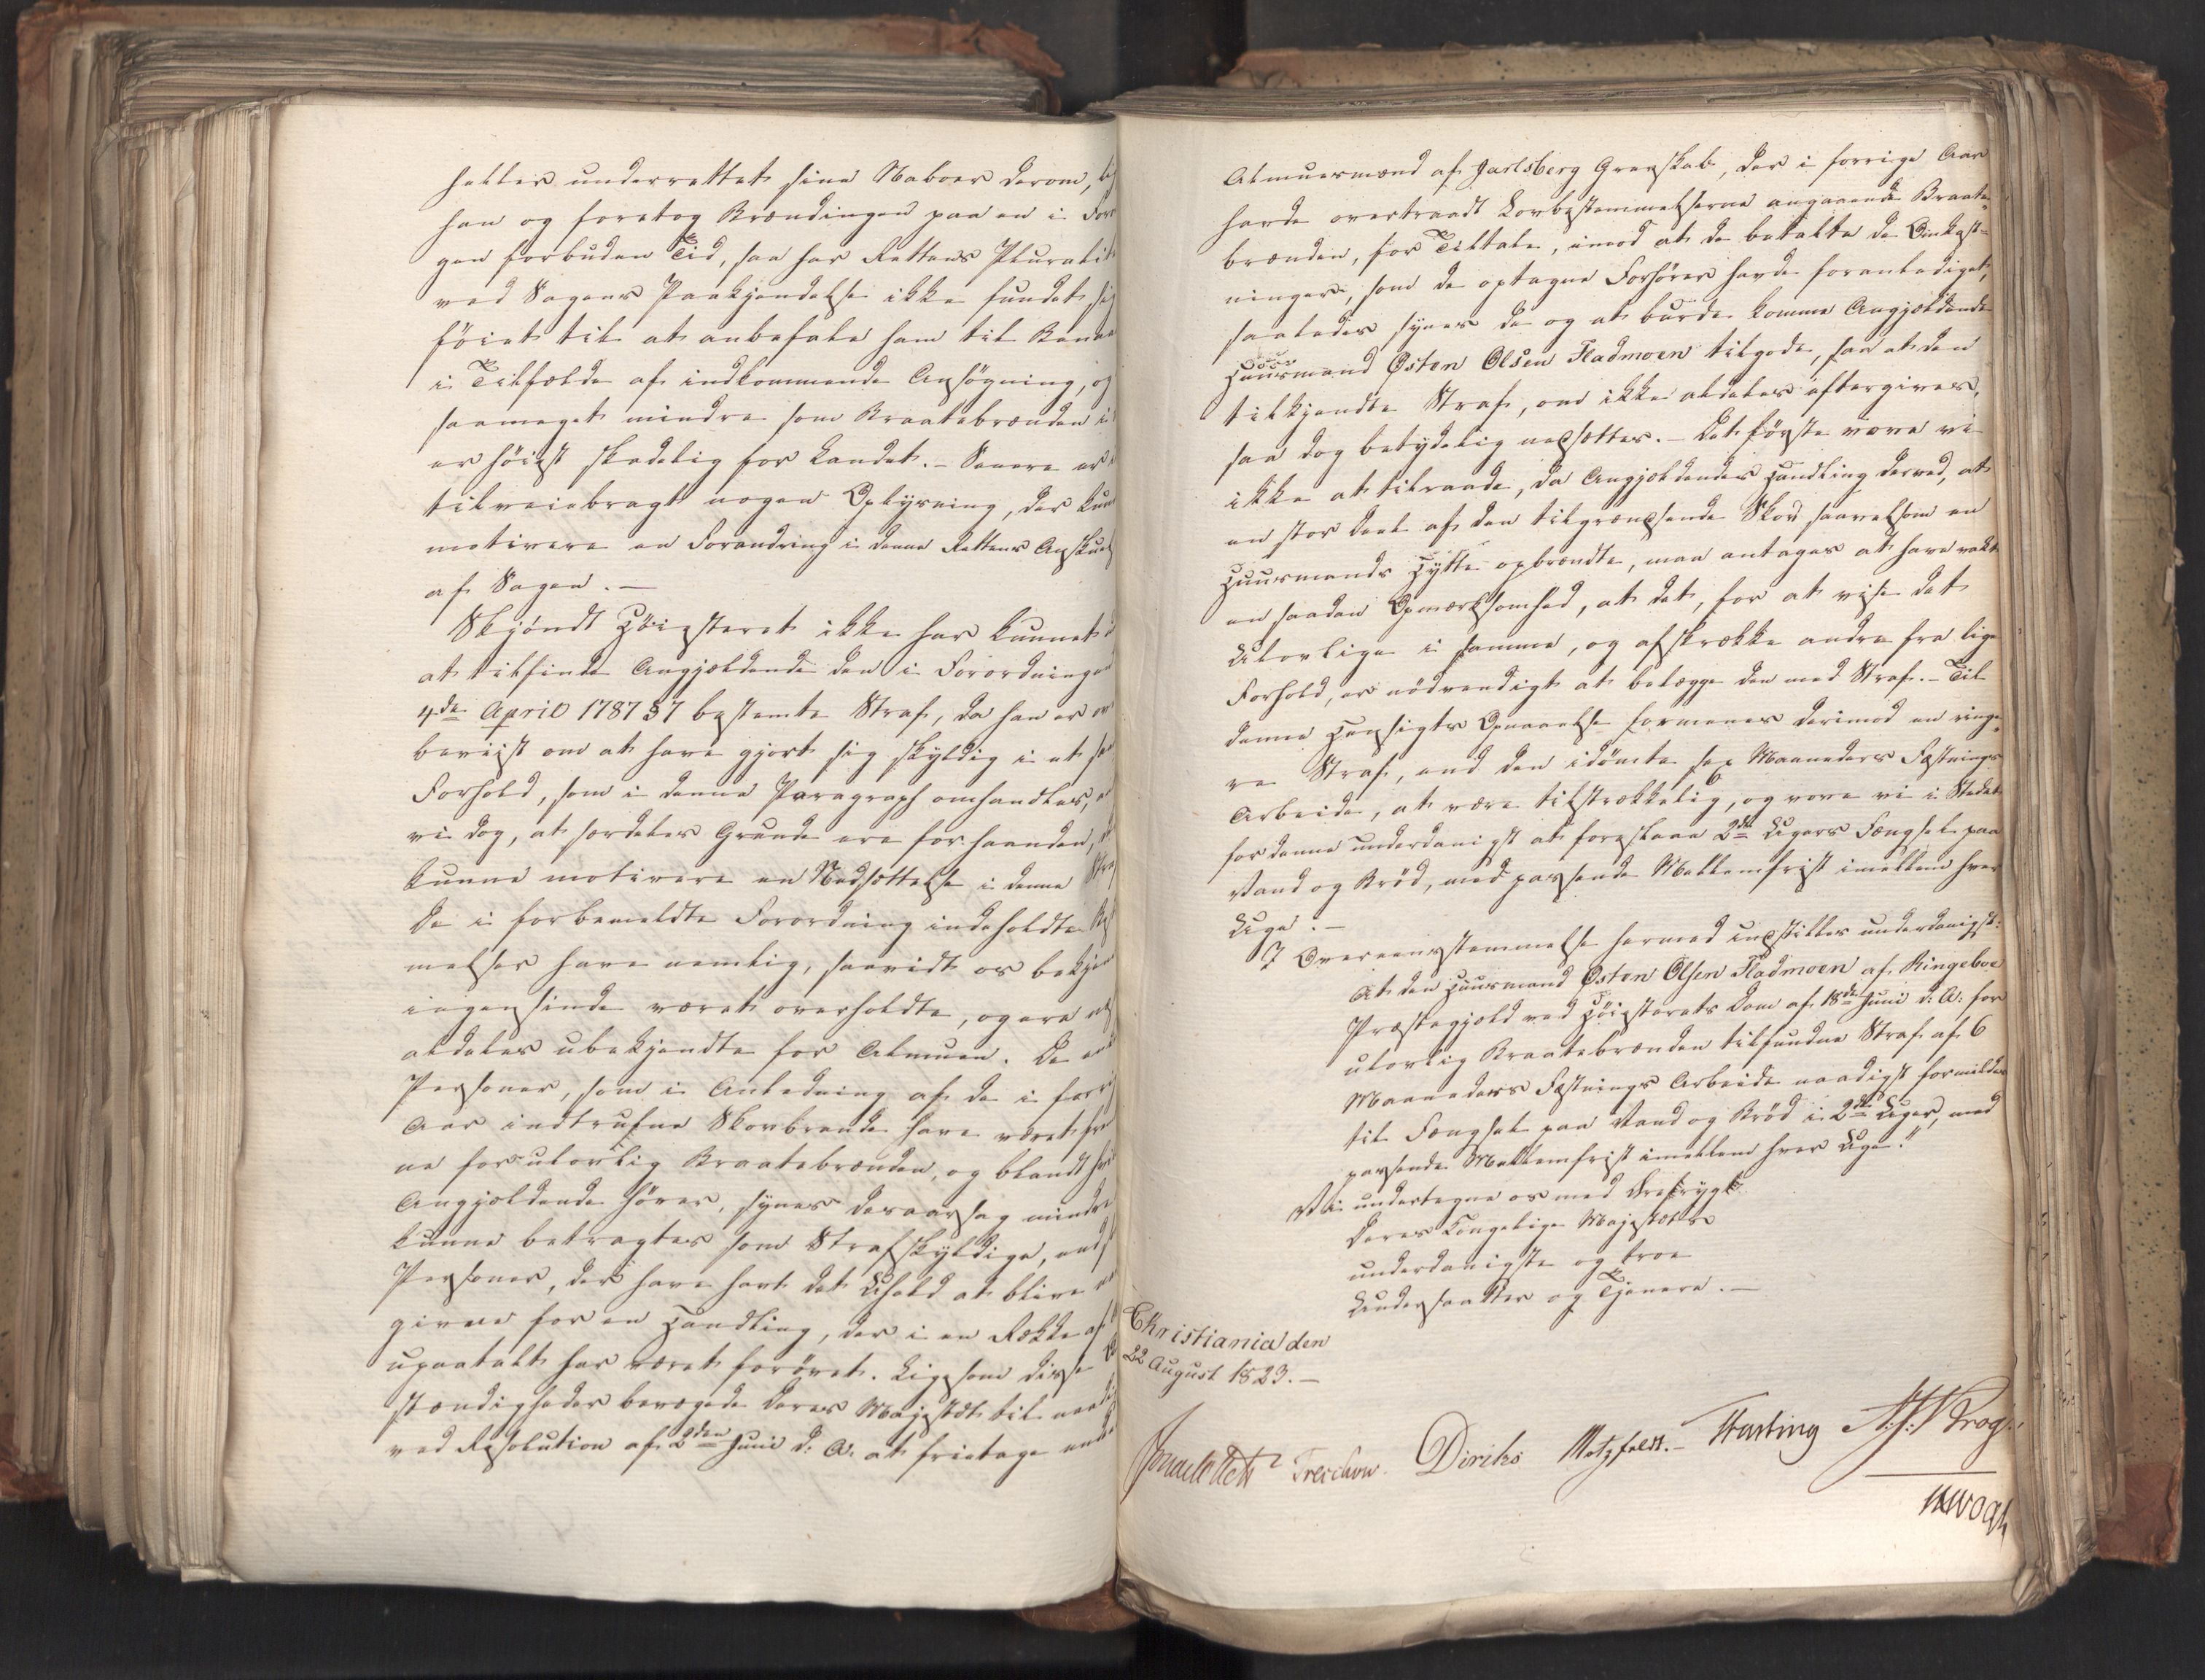 heller underrettet sine Naboer derom,
han og foretog Brændingen paa en i
gen forbuden Tid, saa har Rettens Pluralit
ved Sagens Paakjendelse ikke fundet sig
föiet til at anbefale ham til Benaa
i Tilfælde af indkommende Ansögning, og
saameget mindre som Braatebrænden i
er höist skadelig for Landet. – Senere er
tilveiebragt nogen Oplysning, der kun
motivere en Forandring i denne Rettens Anskuel
af Sagen. –
Skjöndt Höiesteret ikke har kunnet
at tilfinde Angjældende den i Forordningen
4de April 1787 § 7 bestemte Straf, da han er
beviist om at have gjort sig skyldig i et
Forhold, som i denne Paragraph omhandles,
vi dog, at særdeles Grunde ere forhaanden,
kunne motivere en Nedsættelse i denne Straf
De i forbemeldte Forordning indeholdte Be
melser have nemlig, saavidt os bekjen
ingensinde været overholdte, og ere
aldeles ubekjendte for Almuen. De
Personer, som i Anledning af de i forri
Aar indtrufne Skovbrande have været
ne for ulovlig Braatebrænden, og blandt hvi
Angjældende hörer, synes desaarsag mindre
kunne betragtes som Strafskyldige, end
Personer, der have havt det Uheld at blive
givne for en Handling, der i en Række af
upaatalt har været forövet. Ligesom disse
stændigheder bevægede Deres Majestæt til naadi
ved Resolution af 2den Juni d: A: at fritage
Almuesmænd af Jarlsberg Grevskab, der i forrige Aar
havde overtraadt Lovbestemmelserne angaaende Braate-
brænden, for Tiltale, imod at de betalte de Omkost-
ninger, som de optagne Forhörer havde foranlediget,
saaledes synes de og at burde komme Angjældende
Huusmand Østen Olsen Fladmoen tilgode, saa at den
tilkjendte Straf, om ikke aldeles eftergives,
saa dog betydelig nedsættes. – Det förste vove vi
ikke at tilraade, da Angjældendes Handling derved, at
en stor Deel af den tilgrændsende Skov saavelsom en
Huusmands Hytte opbrændte, maa antages at have vakt
en saadan Opmærksomhed, at det, for at vise det
Ulovlige i samme, og afskrække andre fra lige
Forhold, er nödvendigt at belægge den med Straf. – Til
denne Hensigts Opnaaelse formenes derimod en ringe-
re Straf, end den idömte sex Maaneders Fæstnings
Arbeide, at være tilstrækkelig, og vove vi i Stedet
for denne underdanigst at foreslaae 2de Ugers Fængsel paa
Vand og Bröd, med passende Mellemfrist imellem hver
Uge. –
I Overeensstemmelse hermed indstilles underdanigst:
At den Huusmand Østen Olsen Fladmoen af Ringeboe
Præstegjeld ved Höiesterets Dom af 18de Juni d: A: for
ulovlig Braatebrænden tilfundne Straf af 6
Maaneders Fæstnings Arbeide naadigst formildes
til Fængsel paa Vand og Bröd i 2de Uger, med
passende Mellemfrist imellem hver Uge."
Vi undertegne os med Ærefrygt
Deres Kongelige Majestæts
underdanigste og troe
Undersaatter og Tjenere. –
Christiania den
22 August 1823. –
Treschow. Diriks Motzfeldt. Fasting